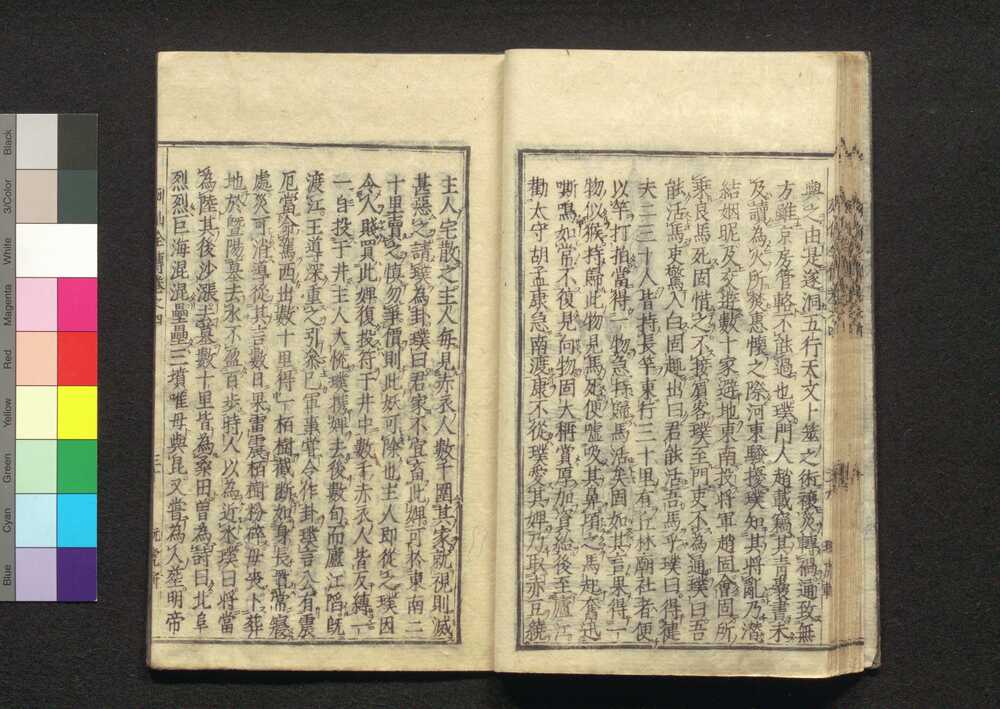 與之由是遂洞五行天文卜筮之術禳災轉禍通致無
方雖京房管輅不能過也璞門人趙載竊其青囊書未
及讀為火所焚惠懷之際河東騷擾璞知其將亂乃潛
結姻昵及交遊數十家避地東南投將軍趙固會固所
乘良馬死固惜之不接賓客璞至門吏不為通璞曰吾
能活馬吏驚入白固趨出曰君能活吾馬乎璞曰得健
夫二三十人皆持長竿東行三十里有丘林廟社者便
以竿打拍當得一物急持歸馬活矣固如其言果得一
物似猴持歸此物見馬死便噓吸其鼻頃之馬起奮迅
嘶鳴如常不復見向物固大稱賞厚加資給後至廬江
勸太守胡孟康急南渡康不從璞愛其婢乃取赤豆繞
主人宅散之主人每見赤衣人數千圍其家就視則滅
甚惡之請璞為卦璞曰君家不宜畜此婢可於東南二
十里賣之慎勿爭價則此妖可除也主人即從之璞因
令人賤買此婢復投符于井中數千赤衣人皆反縛一
一自投于井主人大悅璞携婢去後數旬而廬江陷既
渡江王導深重之引參已軍事嘗令作卦璞言公有震
厄當命駕西出數十里得一栢樹截斷如身長置常寢
處災可消導從其言數日果雷震栢樹粉碎母喪卜葬
地於暨陽墓去水不盈百步時人以為近水璞曰將當
為陸其後沙漲去墓數十里皆為桑田曾為詩曰北阜
烈烈巨海混混壘壘三墳唯母與昆又嘗為人葬明帝
列仙全傳卷之四
三
玩虎軒
Black
3/Color
White
Magenta
Red
Yellow
Green
Cyan
Blue